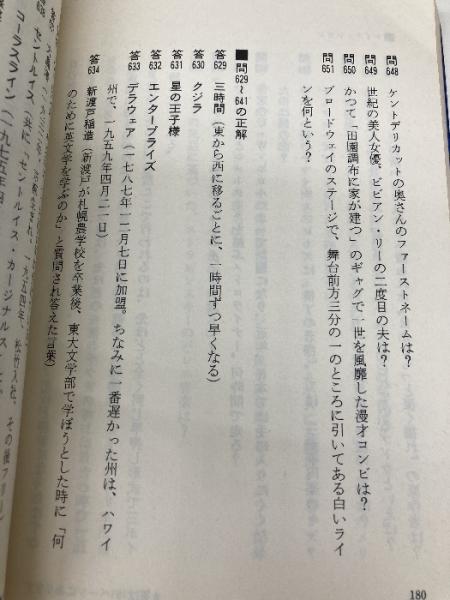 問648 ケントデリカットの奥さんのファーストネームは?
問649 世紀の美人女優、ビビアン・リーの二度目の夫は?
問650 かつて「田園調布に家が建つ」のギャグで一世を風靡した漫才コンビは?
問651 ブロードウェイのステージで、舞台前方三分の一のところに引いてある白いライ
ンを何という?
■問629〜641の正解
答629 三時間(東から西に移るごとに、一時間ずつ早くなる)
答630 クジラ
答631 星の王子様
答632 エンタープライズ
答633 デラウェア(一七八七年一二月七日に加盟。ちなみに一番遅かった州は、ハワイ
州で、一九五九年四月二一日)
答634 新渡戸稲造(新渡戸が札幌農学校を卒業後、東大文学部で学ぼうとした時に「何
のために英文学を学ぶのか」と質問され答えた言葉)
セントルイス(共に「セントルイス・カージナルス
コーラスライン(一九七五年
180